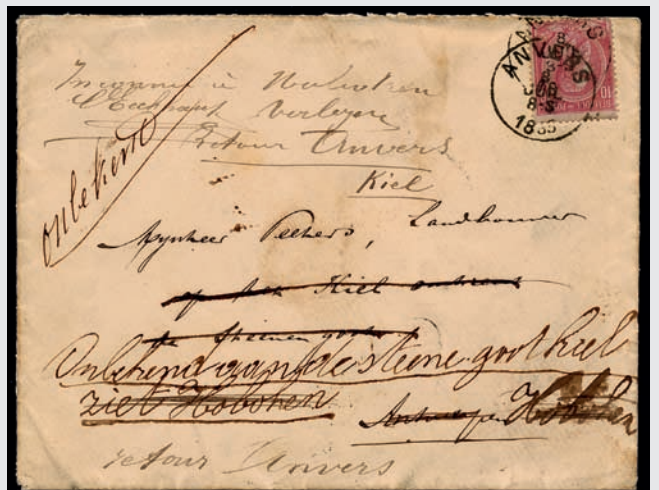 ANVERS
8-S
1885
10
Inconnu à Hoboken
Verleyen
retour Anvers
Kiel
onbekend
Mynheer Peeters, Landbouwer
op het Kiel omtrent
de Steenen goot
Onbekend aan de steene goot kiel
ziet Hoboken
Antwerpen Hoboken
retour Anvers